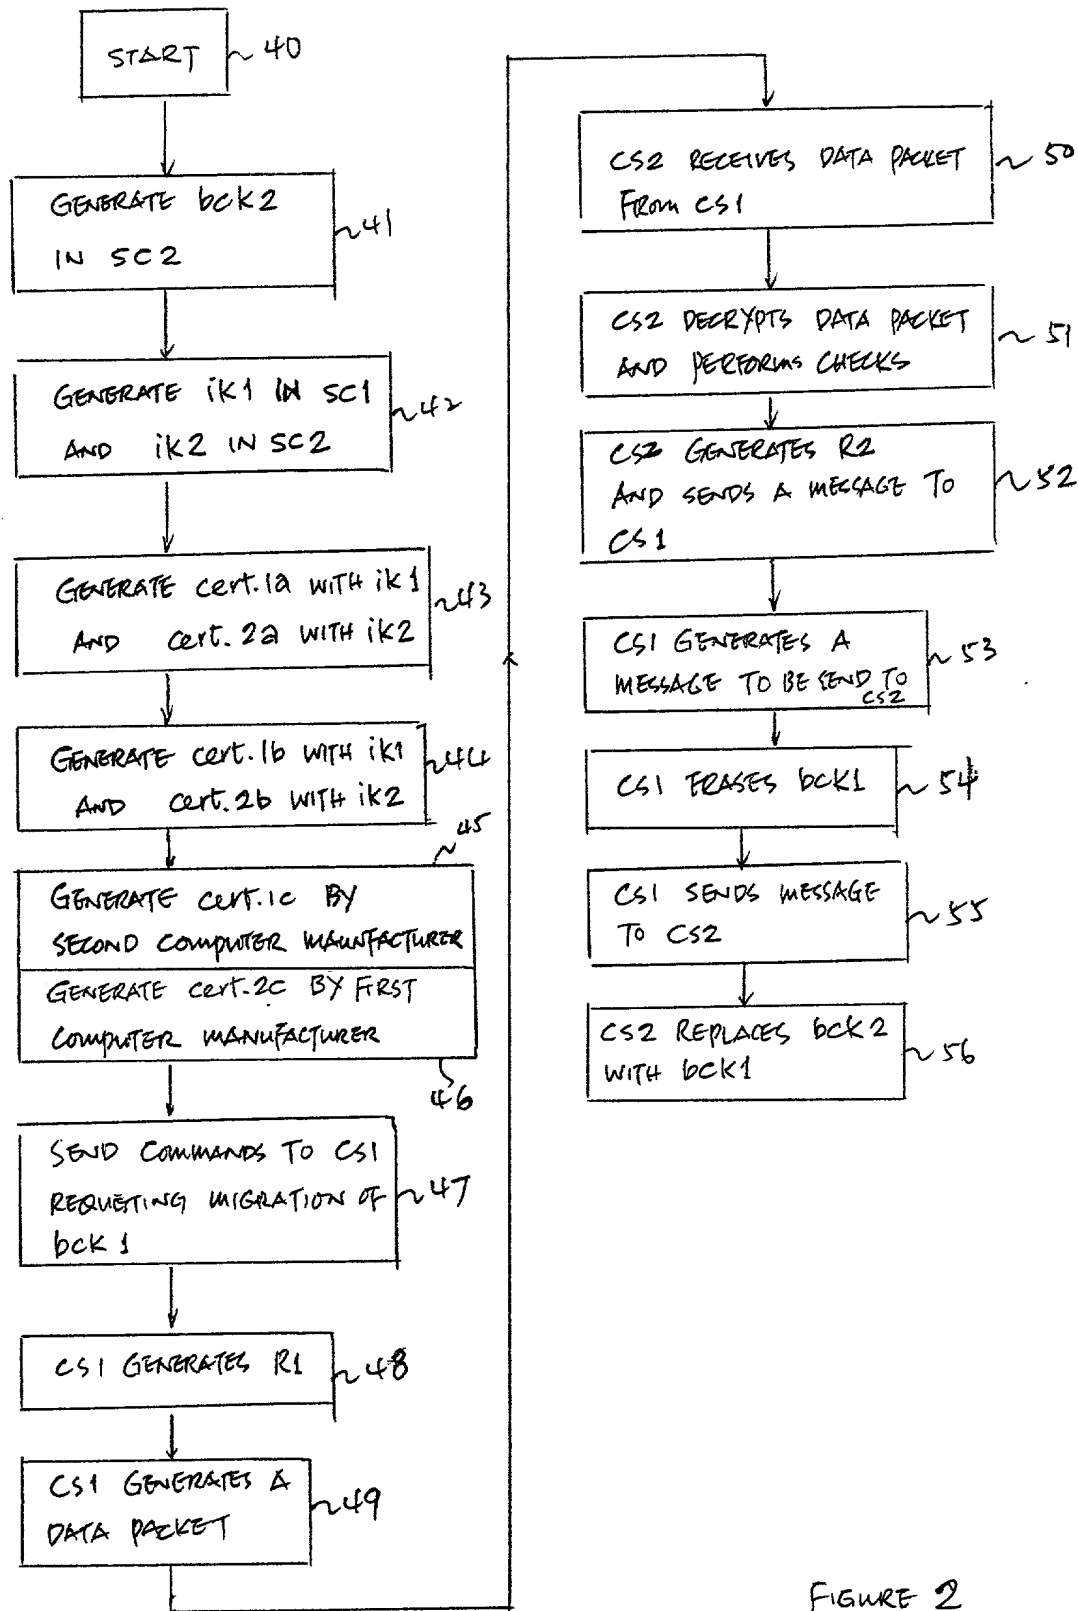 START
40
GENERATE bck2
IN SC2
41
GENERATE ik1 IN SC1
AND ik2 IN SC2
42
GENERATE cert.1a WITH ik1
AND cert.2a WITH ik2
43
GENERATE cert.1b WITH ik1
AND cert.2b WITH ik2
44
45
GENERATE cert.1c BY
SECOND COMPUTER MAUNFACTURER
GENERATE cert.2c BY FIRST
COMPUTER MANUFACTURER
46
SEND COMMANDS TO CS1
REQUESTING MIGRATION OF
bck 1
47
CS1 GENERATES R1
48
CS1 GENERATES A
DATA PACKET
49
CS2 RECEIVES DATA PACKET
FROM CS1
50
CS2 DECRYPTS DATA PACKET
AND PERFORMS CHECKS
51
CS2 GENERATES R2
AND SENDS A MESSAGE TO
CS1
52
CS1 GENERATES A
MESSAGE TO BE SEND TO
CS2
53
CS1 ERASES bck1
54
CS1 SENDS MESSAGE
TO CS2
55
CS2 REPLACES bck2
WITH bck1
56
FIGURE 2